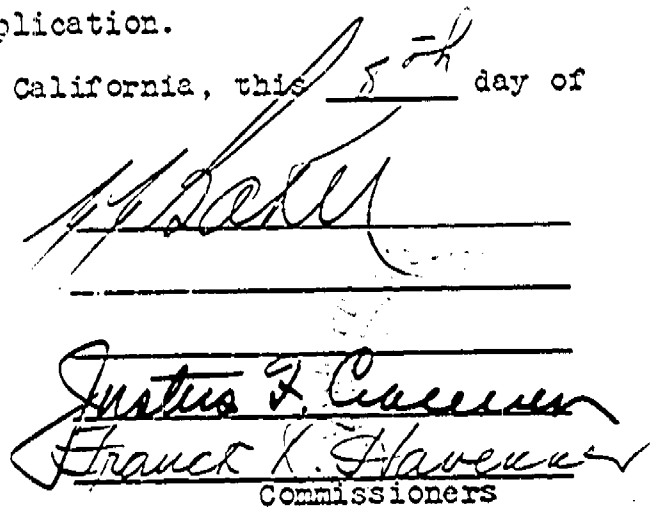 plication.
California, this 5th day of
Baker
Justus F. Craemer
Franck R. Havenner
Commissioners